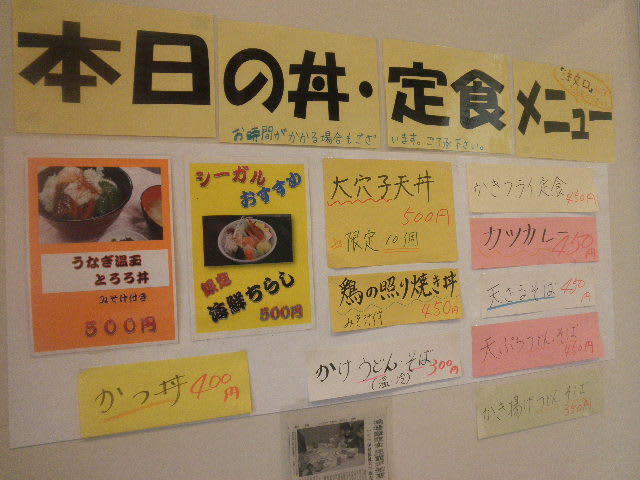 本日の丼・定食メニュー
お時間がかかる場合もございます。ご了承下さい。
うなぎ温玉
とろろ丼
みそ汁付き
500円
シーガル
おすすめ
限定
海鮮ちらし
500円
大穴子天丼
500円
限定10個
鶏の照り焼き丼
みそ汁付
450円
かけうどん・そば
(温冷)
300円
かつ丼
400円
かきフライ定食
450円
カツカレー
450円
天ざるそば
450円
天ぷらうどん・そば
450円
かき揚げうどん・そば
350円